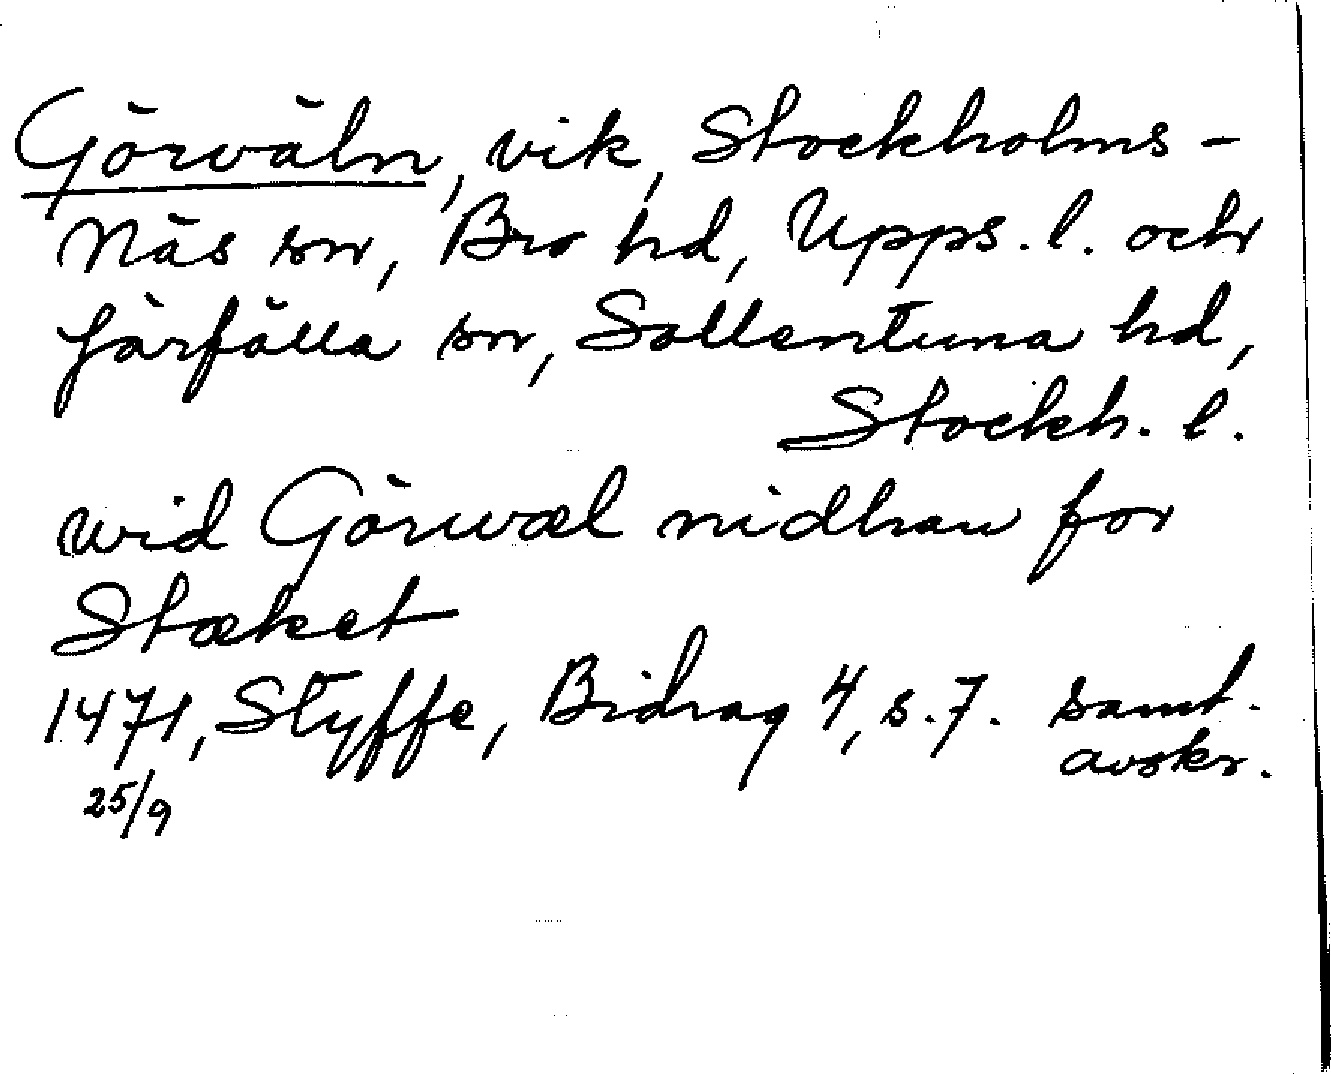 Görväln, vik, Stockholms-
Näs sn, Bro hd, Upps. l. och
Järfälla sn, Sollentuna hd,
Stockh. l.
wid Görwæl nidhan for
Stæket
1471, Styffe, Bidrag 4, s. 7. samt.
avskr.
25/9